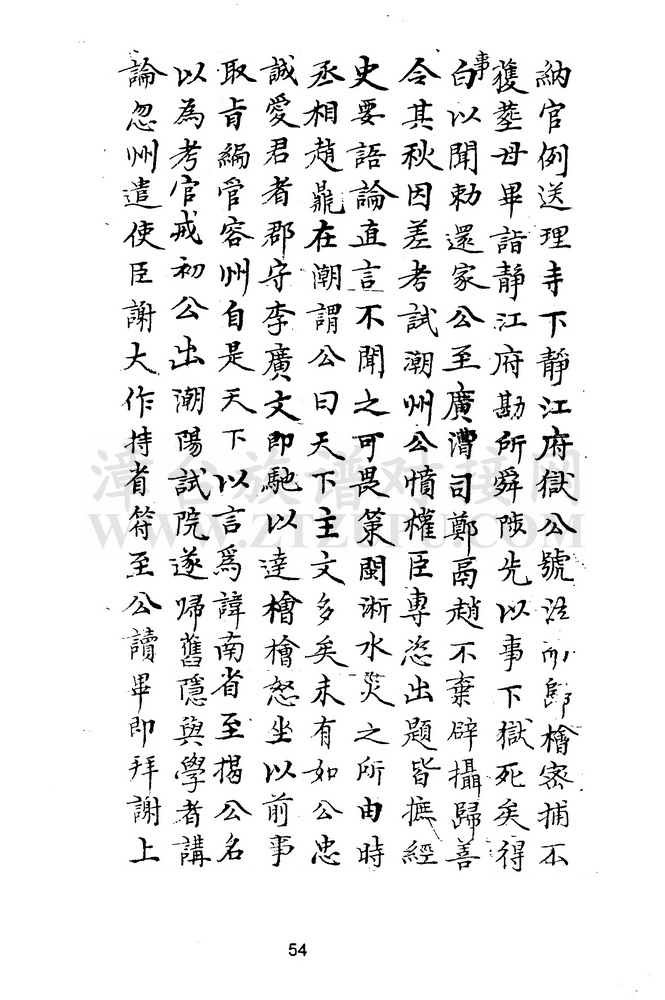 納官例送理寺下靜江府獄公號泣
檜密捕不
獲塟母畢詣靜江府勘所舜陟先以事下獄死矣得
事
白以聞勅還家公至廣漕司鄭鬲趙不棄辟攝歸善
令其秋因差考試潮州公憤權臣專恣出題皆摭經
史要語論直言不聞之可畏策閩淅水災之所由時
丞相趙鼎在潮謂公曰天下主文多矣未有如公忠
誠愛君者郡守李廣文即馳以達檜檜怒坐以前事
取旨編管容州自是天下以言爲諱南省至揭公名
以為考官戒初公出潮陽試院遂歸舊隱與學者講
論忽州遣使臣謝大作持省符至公讀畢即拜謝上
漳台族谱对接网
WWW.ZTZUPU.COM
54